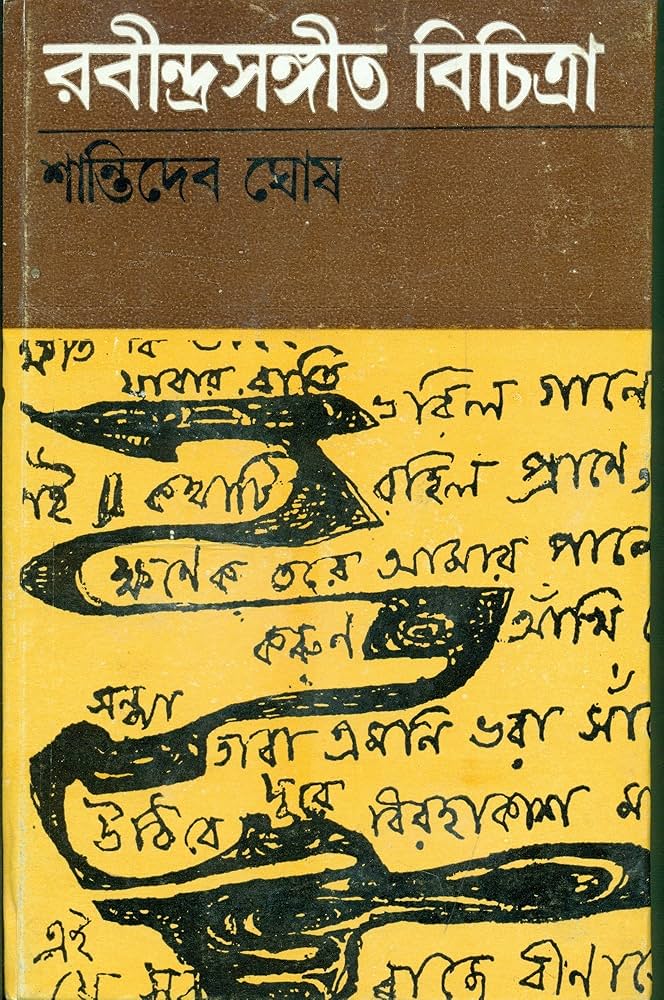 রবীন্দ্রসঙ্গীত বিচিত্রা
শান্তিদেব ঘোষ
যাবার রাতি ভরিল গানে
কথাটি রহিল প্রাণে
ক্ষণেক তরে আমায় পানে
করুণ আঁখি
সন্ধ্যা
তারা এমনি ভরা
উঠিবে দূরে বিরহাকাশ
এই
বাজে বীণা